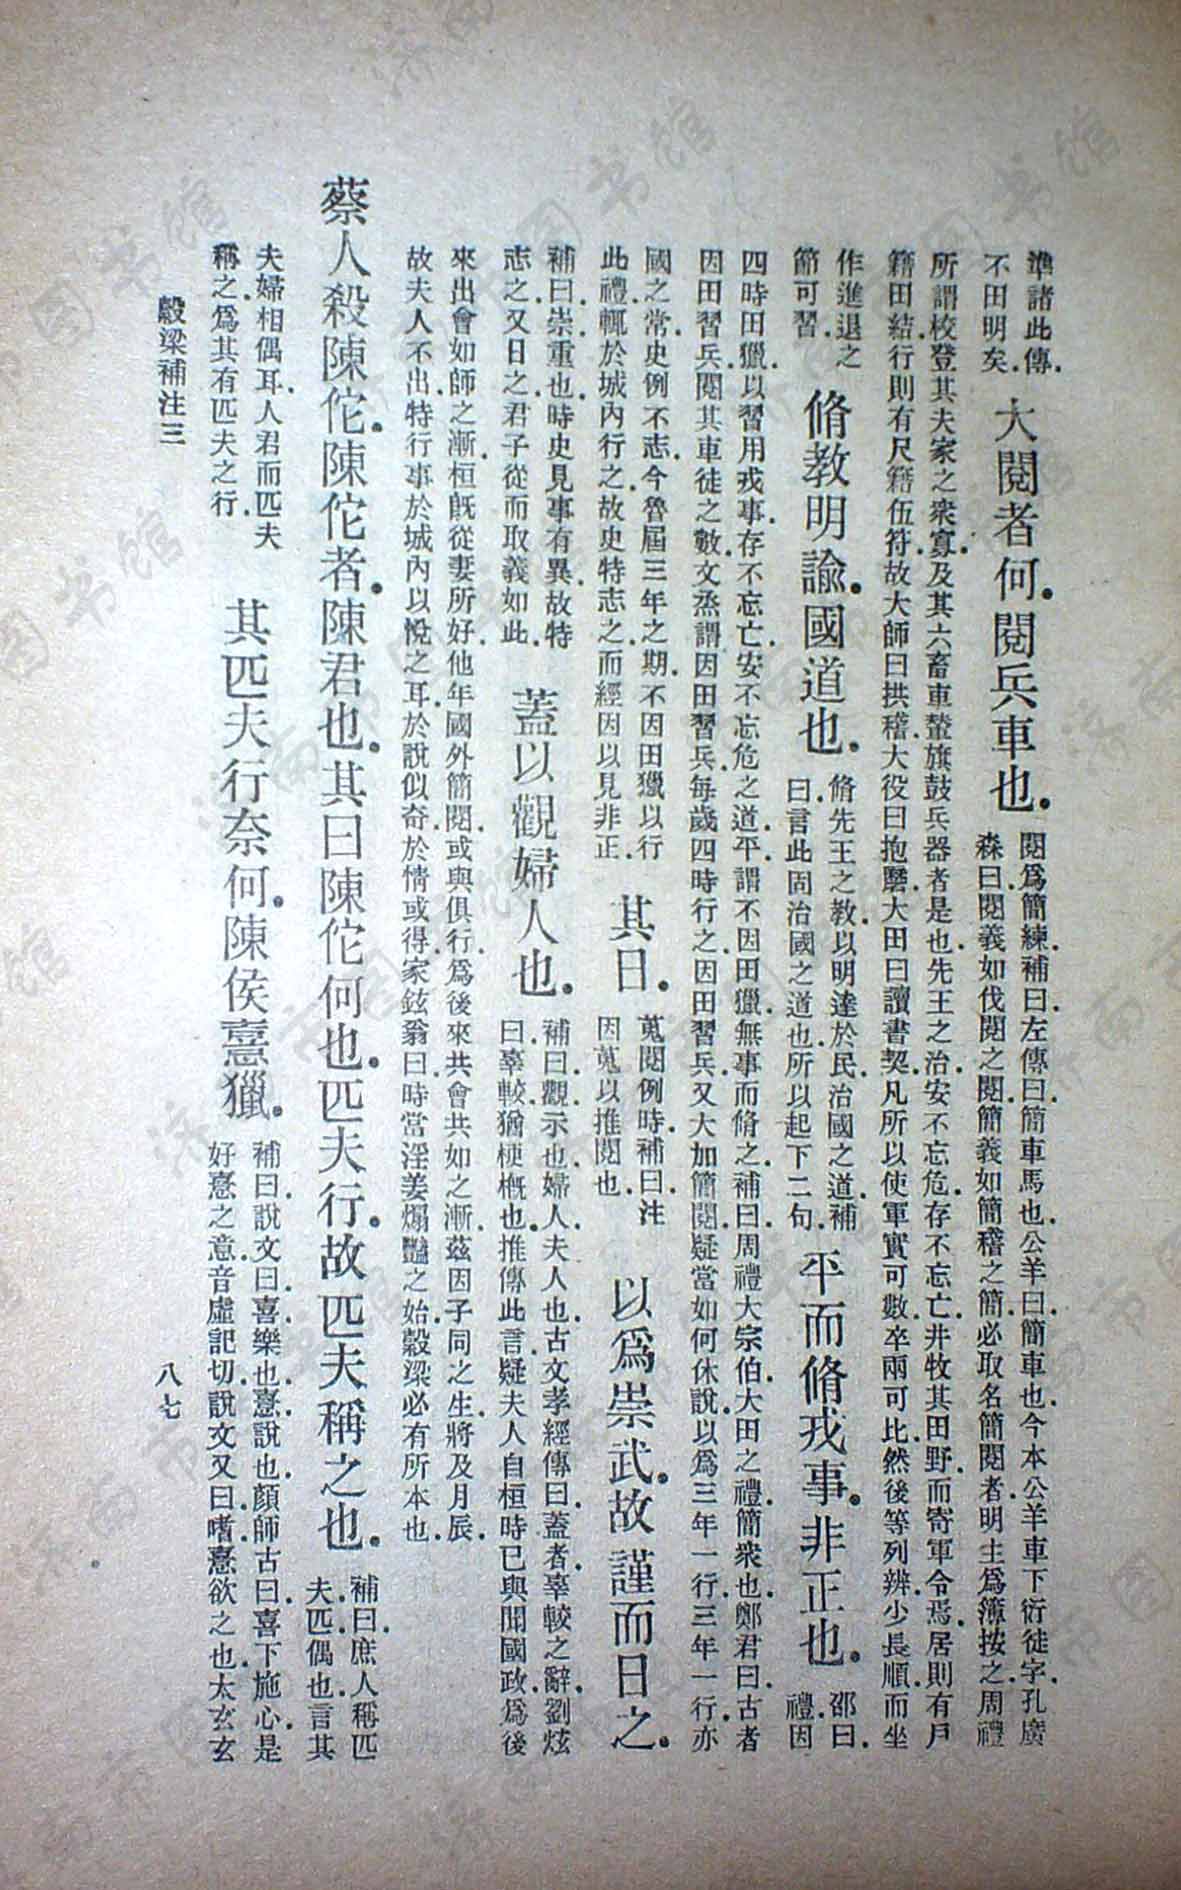 準諸此傳.
不田明矣.
大閱者何.閱兵車也.
閱爲簡練.補曰.左傳曰.簡車馬也.公羊曰.簡車也.今本公羊車下衍徒字.孔廣
森曰.閱義如伐閱之閱.簡義如簡稽之簡.必取名簡閱者.明主爲簿按之.周禮
所謂校登其夫家之衆寡.及其六畜車輦旗鼓兵器者是也.先王之治.安不忘危.存不忘亡.井牧其田野.而寄軍令焉.居則有戶
籍田結.行則有尺籍伍符.故大師曰拱稽.大役曰抱磿.大田曰讀書契.凡所以使軍實可數.卒兩可比.然後等列辨.少長順.而坐
作進退之
節可習.
脩教明諭.國道也.
脩先王之教.以明達於民.治國之道.補
曰.言此固治國之道也.所以起下二句.
平而脩戎事.非正也.
邵曰.
禮因
四時田獵.以習用戎事.存不忘亡.安不忘危之道.平.謂不因田獵.無事而脩之.補曰.周禮大宗伯.大田之禮.簡衆也.鄭君曰.古者
因田習兵.閱其車徒之數.文烝謂因田習兵.每歲四時行之.因田習兵.又大加簡閱.疑當如何休說.以爲三年一行.三年一行.亦
國之常.史例不志.今魯屆三年之期.不因田獵以行
此禮.輒於城內行之.故史特志之.而經因以見非正.
其日.
蒐閱例時.補曰.注
因蒐以推閱也.
以爲崇武.故謹而日之.
補曰.崇.重也.時史見事有異.故特
志之.又日之.君子從而取義如此.
蓋以觀婦人也.
補曰.觀.示也.婦人.夫人也.古文孝經傳曰.蓋者.辜較之辭.劉炫
曰.辜較.猶梗概也.推傳此言.疑夫人自桓時已與聞國政.爲後
來出會如師之漸.桓既從妻所好.他年國外簡閱.或與俱行.爲後來共會共如之漸.茲因子同之生.將及月辰.
故夫人不出.特行事於城內以悅之耳.於說似奇.於情或得.家鉉翁曰.時當淫姜煽豔之始.穀梁必有所本也.
蔡人殺陳佗.陳佗者.陳君也.其曰陳佗何也.匹夫行.故匹夫稱之也.
補曰.庶人稱匹
夫.匹.偶也.言其
夫婦相偶耳.人君而匹夫
稱之.爲其有匹夫之行.
其匹夫行奈何.陳侯憙獵.
補曰.說文曰.喜.樂也.憙.說也.顏師古曰.喜下施心.是
好憙之意.音虛記切.說文又曰.嗜.憙欲之也.太玄玄
穀梁補注三
八七